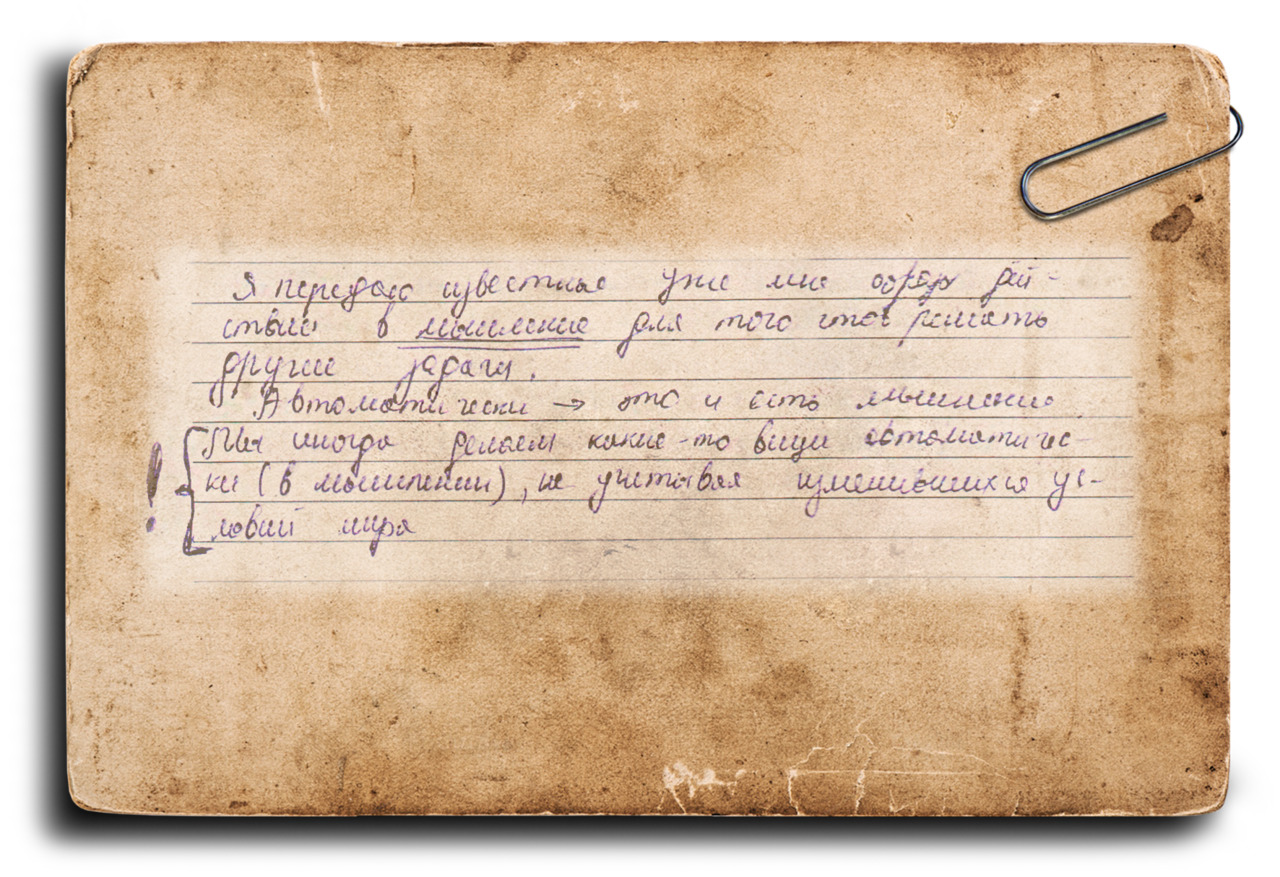 Я передаю известные уже мне образы дей-
ствий в мышление для того чтоб решать
другие задачи.
Автоматически → это и есть мышление
! { Мы иногда делаем какие-то вещи автоматичес-
ки (в мышлении), не учитывая изменившихся ус-
ловий мира